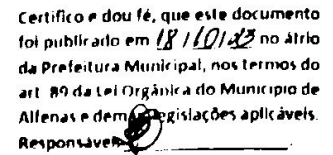 Certifico e dou fé, que este documento
foi publicado em 18/10/23 no átrio
da Prefeitura Municipal, nos termos do
art 89 da Lei Orgânica do Município de
Alfenas e demais legislações aplicáveis.
Responsável